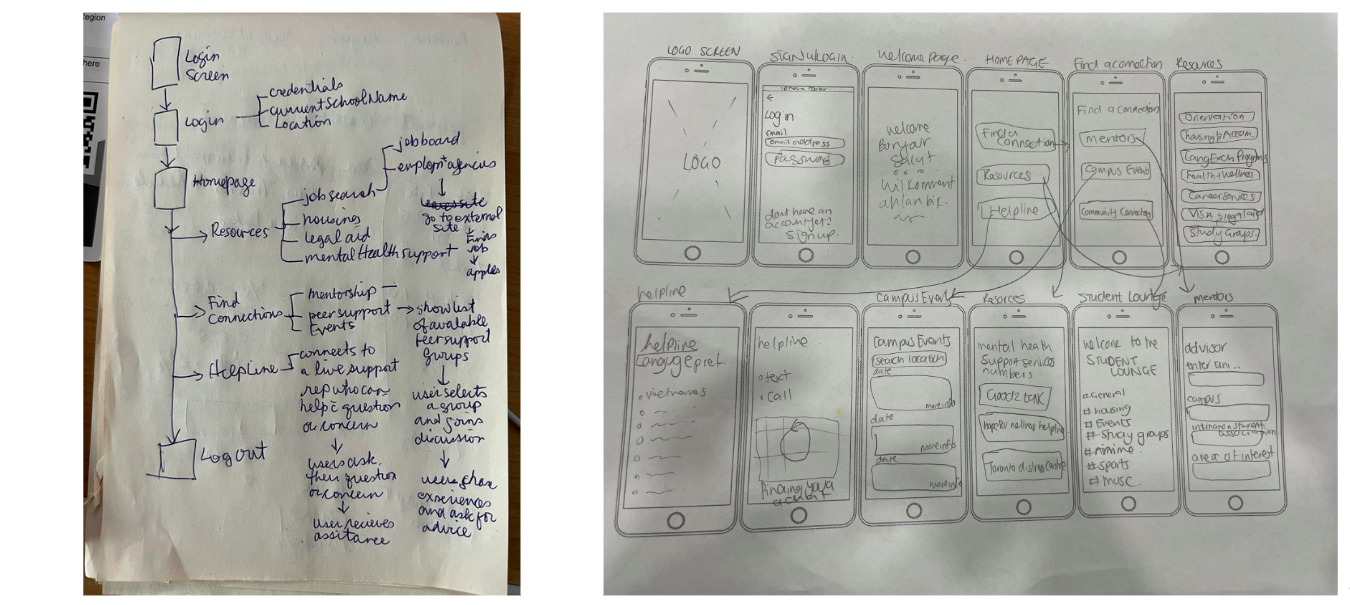 Region
here
Login
Screen
Login
credentials
current School Name
Location
Homepage
Resources
job search
housing
legal aid
mental Health support
job board
go to external
site
job
Find
Connections
mentorship
peer support
Events
show list
of avalable
Peer support
groups
user selects
a group
and joins
discussion
user share
experiences
and ask for
advice
HelpLine
connects to
a live support
rep who can
help c question
or concern
users ask
their question
or concern
user recieves
assitance
Log out
LOGO SCREEN
LOGO
SIGN UP/LOGIN
Log in
Email
Email address
Password
dont have an
account yet?
Sign up.
Welcome Page.
welcome
Bonjour
Salut
HOME PAGE
Find a
Connection
Resources
Helpline
Find a conection
Find a connection
Mentors
Campus Events
Community Connection
Resources
Orientation
Housing & Accom.
Lang Exch Programs
health + wellness
Career services
Study Groups
helpline
helpline
Langugepref.
helpline
text
call
Finding you a
Campus Event
Campus Events
Search location
date
more info
date
more info
date
more info
Resorces
mental health
Support services
numbers
Good2Talk
Toronto distress centre
Student Lounge
welcome to the
STUDENT
LOUNGE
# General
# housing
# Events
# Study groups
# sports
# music
mentors
advisor
campus
area of interest